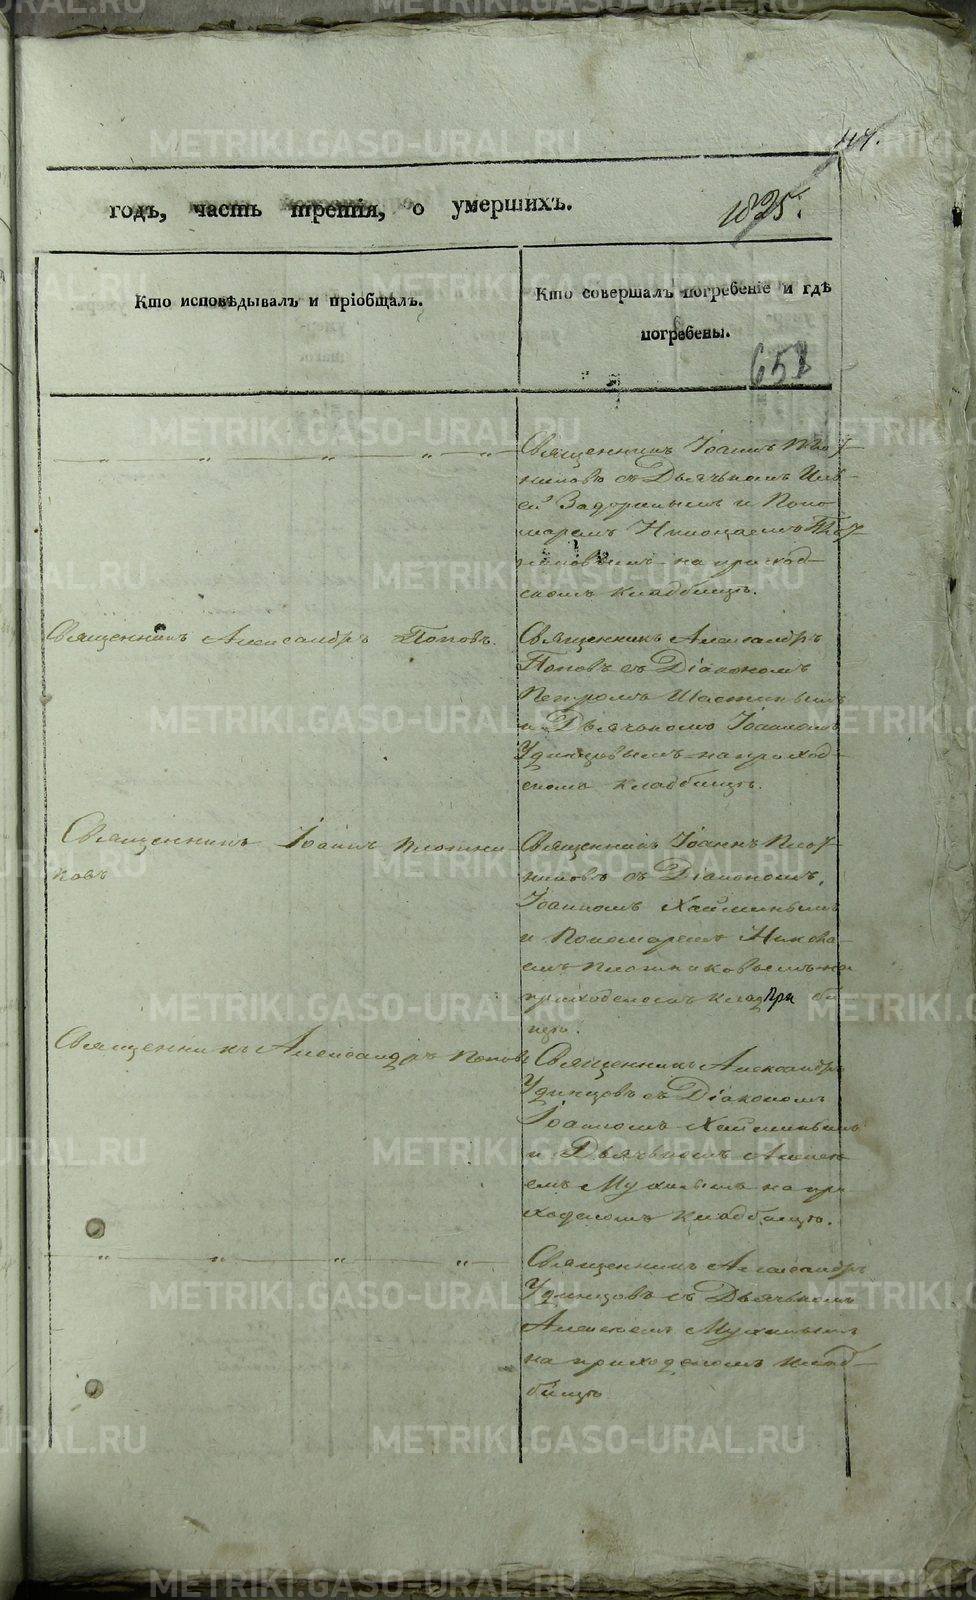 годъ, часть третія, о умершихъ.
1825.
Кто исповѣдывалъ и пріобщалъ.
Кто совершалъ погребеніе и гдѣ
погребены.
651
Священникъ Іоаннъ Плот
никовъ съ Дьячькомъ
Задоринымъ и Поно
маремъ Николаемъ Плот
никовымъ на приход
скомъ кладбищѣ.
Священникъ Александръ Поповъ.
Священникъ Александръ
Поповъ съ Діакономъ
Петромъ
и Дьячькомъ Іоанномъ
Удинцовымъ на приход
скомъ кладбищѣ.
Священникъ Іоаннъ Плотни
ковъ
Священникъ Іоаннъ Плот
никовъ съ Діакономъ
Іоанномъ
и Пономаремъ Никола
емъ Плотниковымъ на
приходскомъ клад при би
щѣ.
Священникъ Александръ Поповъ
Священникъ Александръ
Удинцовъ съ Діакономъ
Іоанномъ
и Дьячькомъ Алексѣ
емъ Мухинымъ на при
ходскомъ кладбищѣ.
Священникъ Александръ
Удинцовъ съ Дьячькомъ
Алексѣемъ Мухинымъ
на приходскомъ клад
бищѣ
METRIKI.GASO-URAL.RU